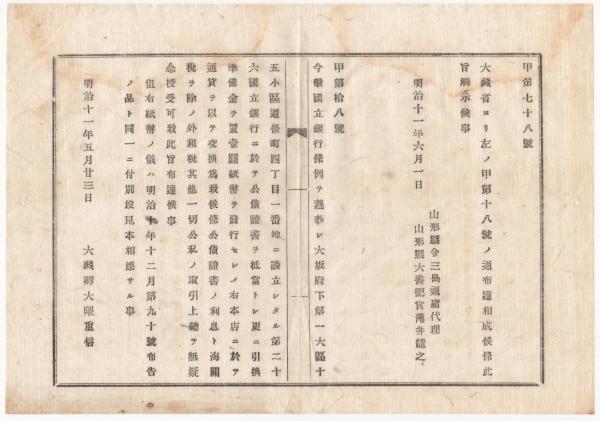 甲第七十八號
大藏省ヨリ左ノ甲第十八號ノ通布達相成候條此
旨觸示候事
明治十一年六月一日
山形縣令三島通庸代理
山形縣大書記官薄井龍之
甲第拾八號
今般國立銀行條例ヲ遵奉シ大坂府下第一大區十
五小區道修町四丁目一番地ニ設立シタル第二十
六國立銀行ニ於テ公債證書ヲ抵當トシ更ニ引換
準備金ヲ置壹圓紙幣ヲ發行セシメ右本店ニ於テ
通貨ヲ以テ交換爲致候條公債證書ノ利息ト海關
稅ヲ除ノ外租稅其他一切公私ノ取引上總テ無疑
念授受可致此旨布達候事
但右紙幣ノ儀ハ明治十年十二月第九十號布告
ノ品ト同一ニ付別段見本相添サル事
明治十一年五月廿三日
大藏卿大隈重信